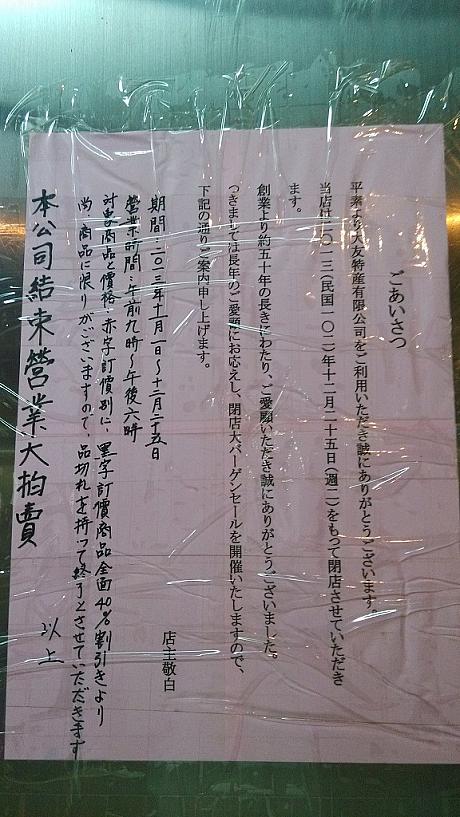 ごあいさつ
平素より大友特産有限公司をご利用いただき誠にありがとうございます。
当店は二〇一三(民国一〇二)年十二月二十五日(週二)をもつて閉店させていただき
ます。
創業より約五十年の長きにわたり、ご愛願いただき誠にありがとうございました。
つきましては長年のご愛顧にお応えし、閉店大バーゲンセールを開催いたしますので、
下記の通りご案内申し上げます。
店主敬白
期間:二〇一三年十月一日〜十二月二十五日
營業時間:午前九時〜午後六時
対象商品と價格:赤字訂價別に、黒字訂價商品全面40%割引きより
尚、商品に限りがございますので、品切れを持って終了とさせていただきます
以上
本公司結束營業大拍賣